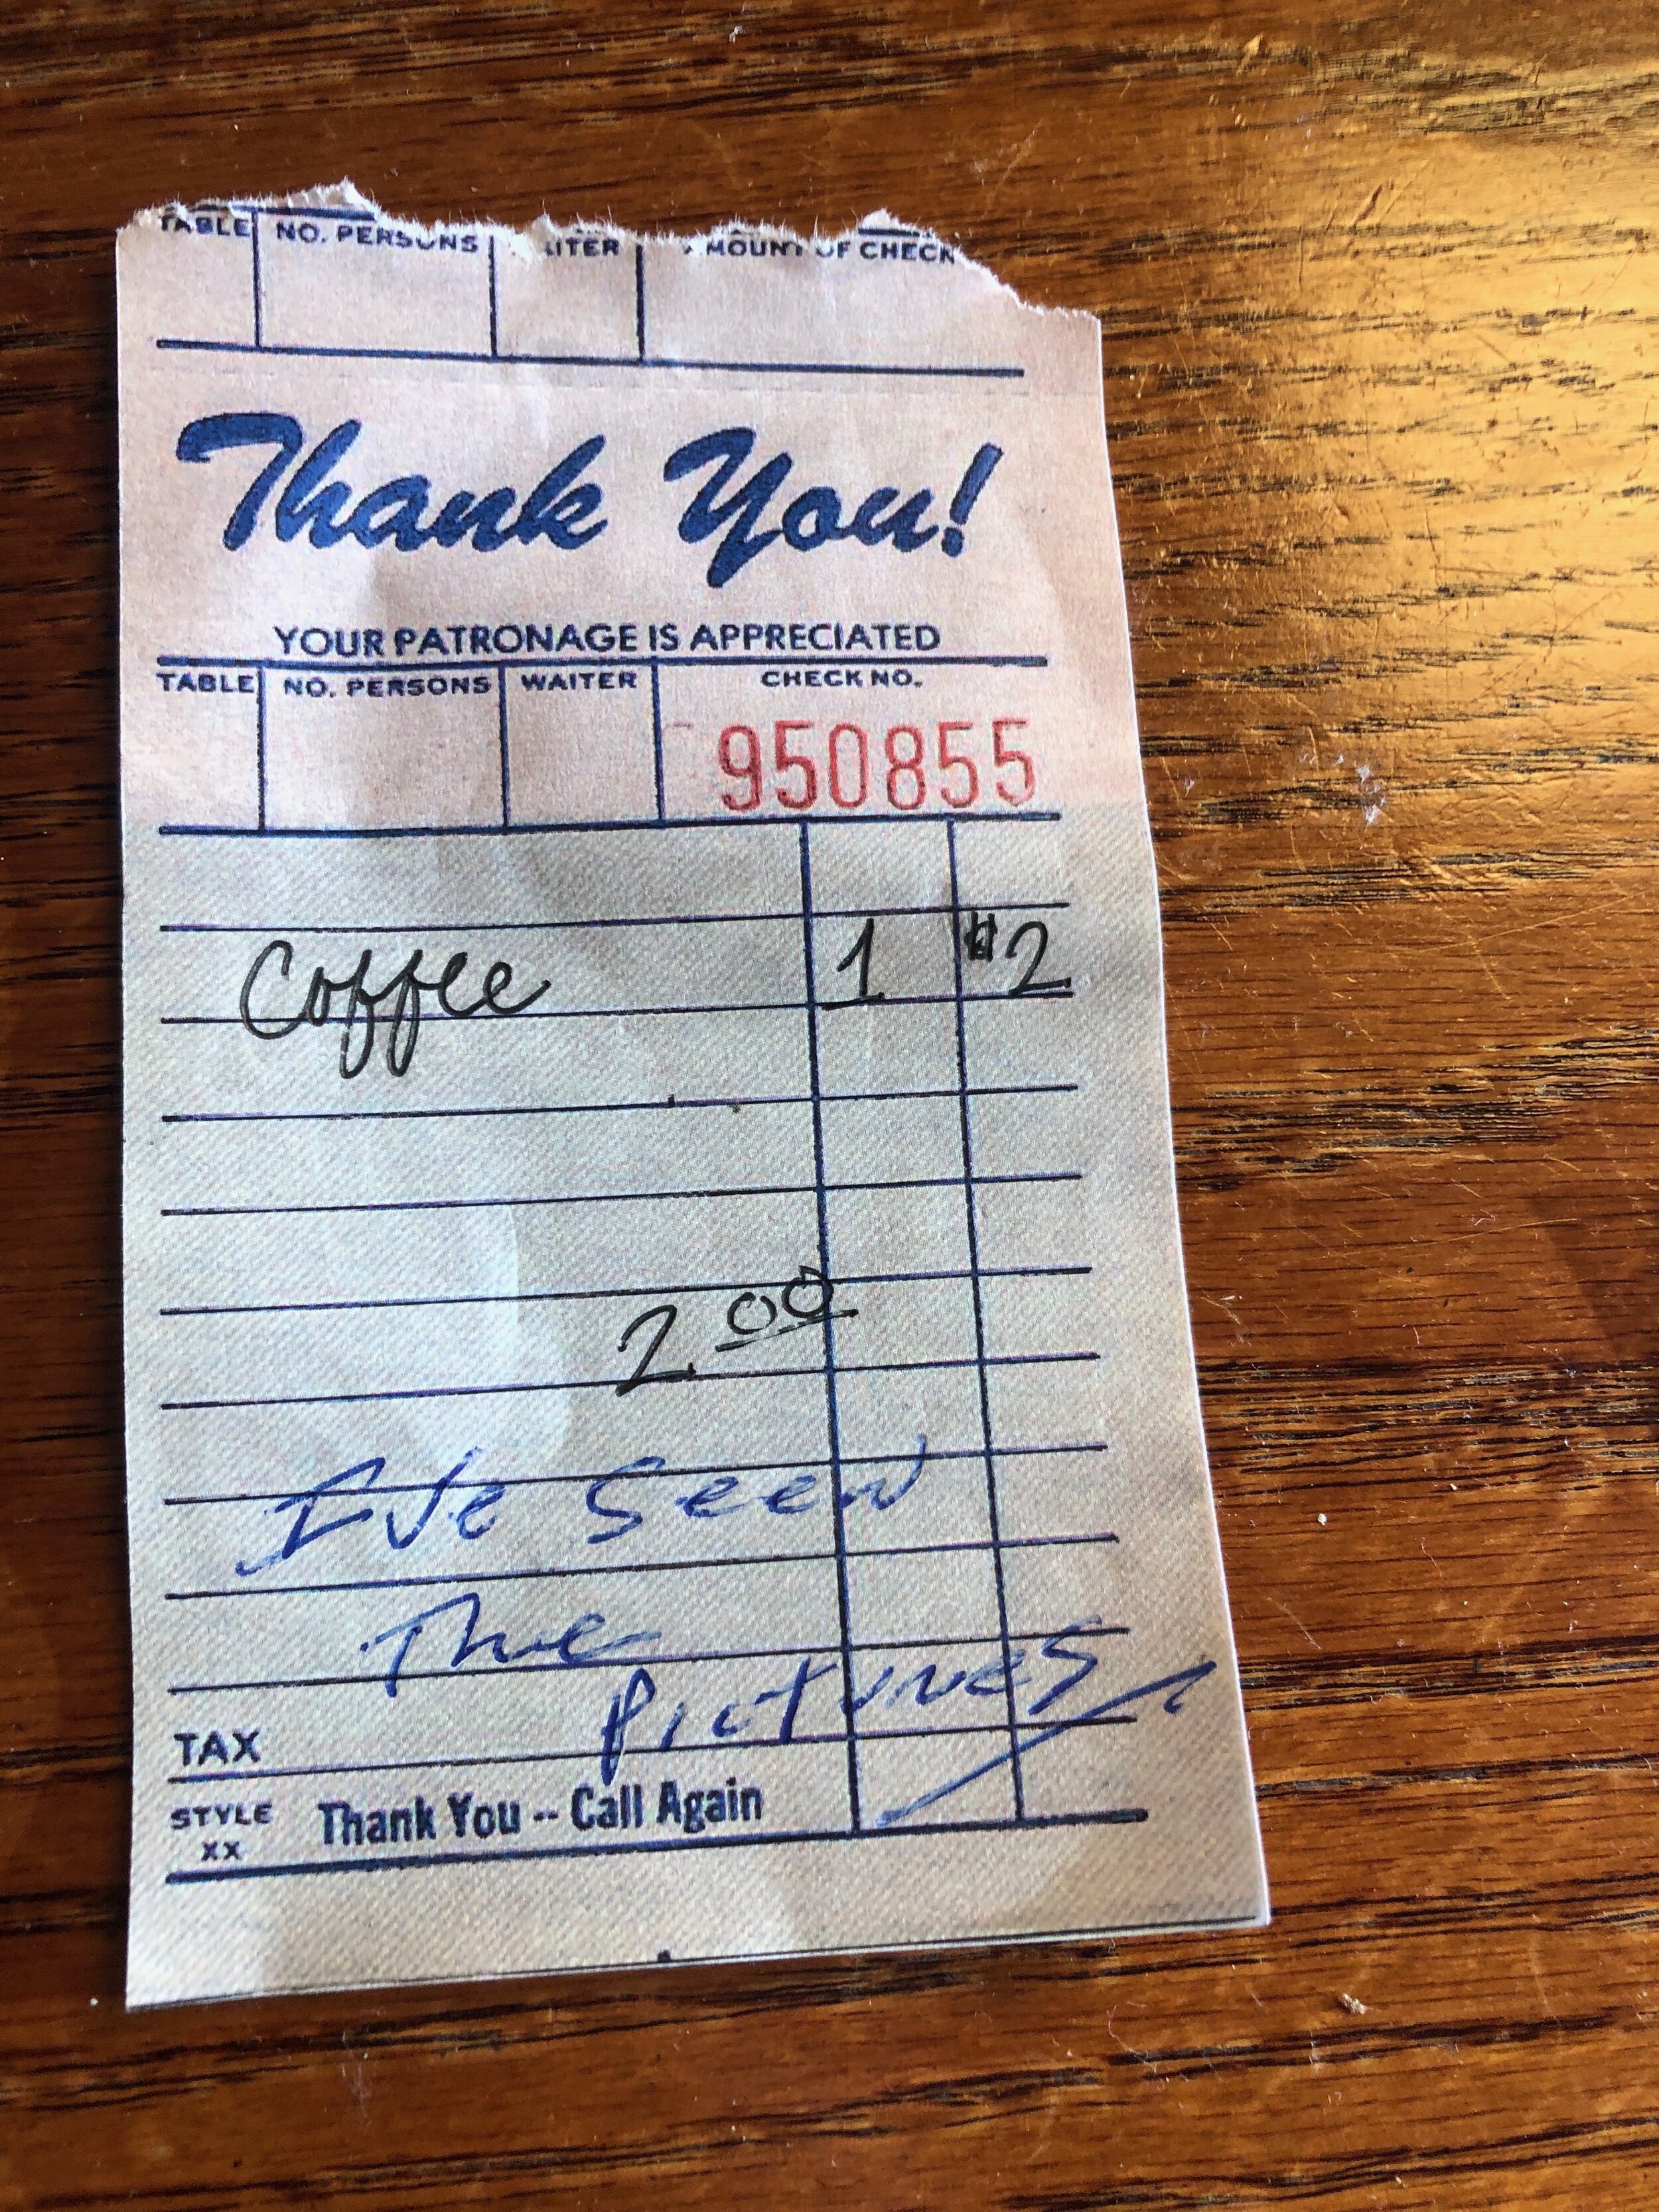 TABLE NO. PERSONS WAITER AMOUNT OF CHECK
Thank You!
YOUR PATRONAGE IS APPRECIATED
TABLE NO. PERSONS WAITER CHECK NO.
950855
Coffee 1 $2
2.00
I've seen
The
pictures
TAX
STYLE XX Thank You -- Call Again